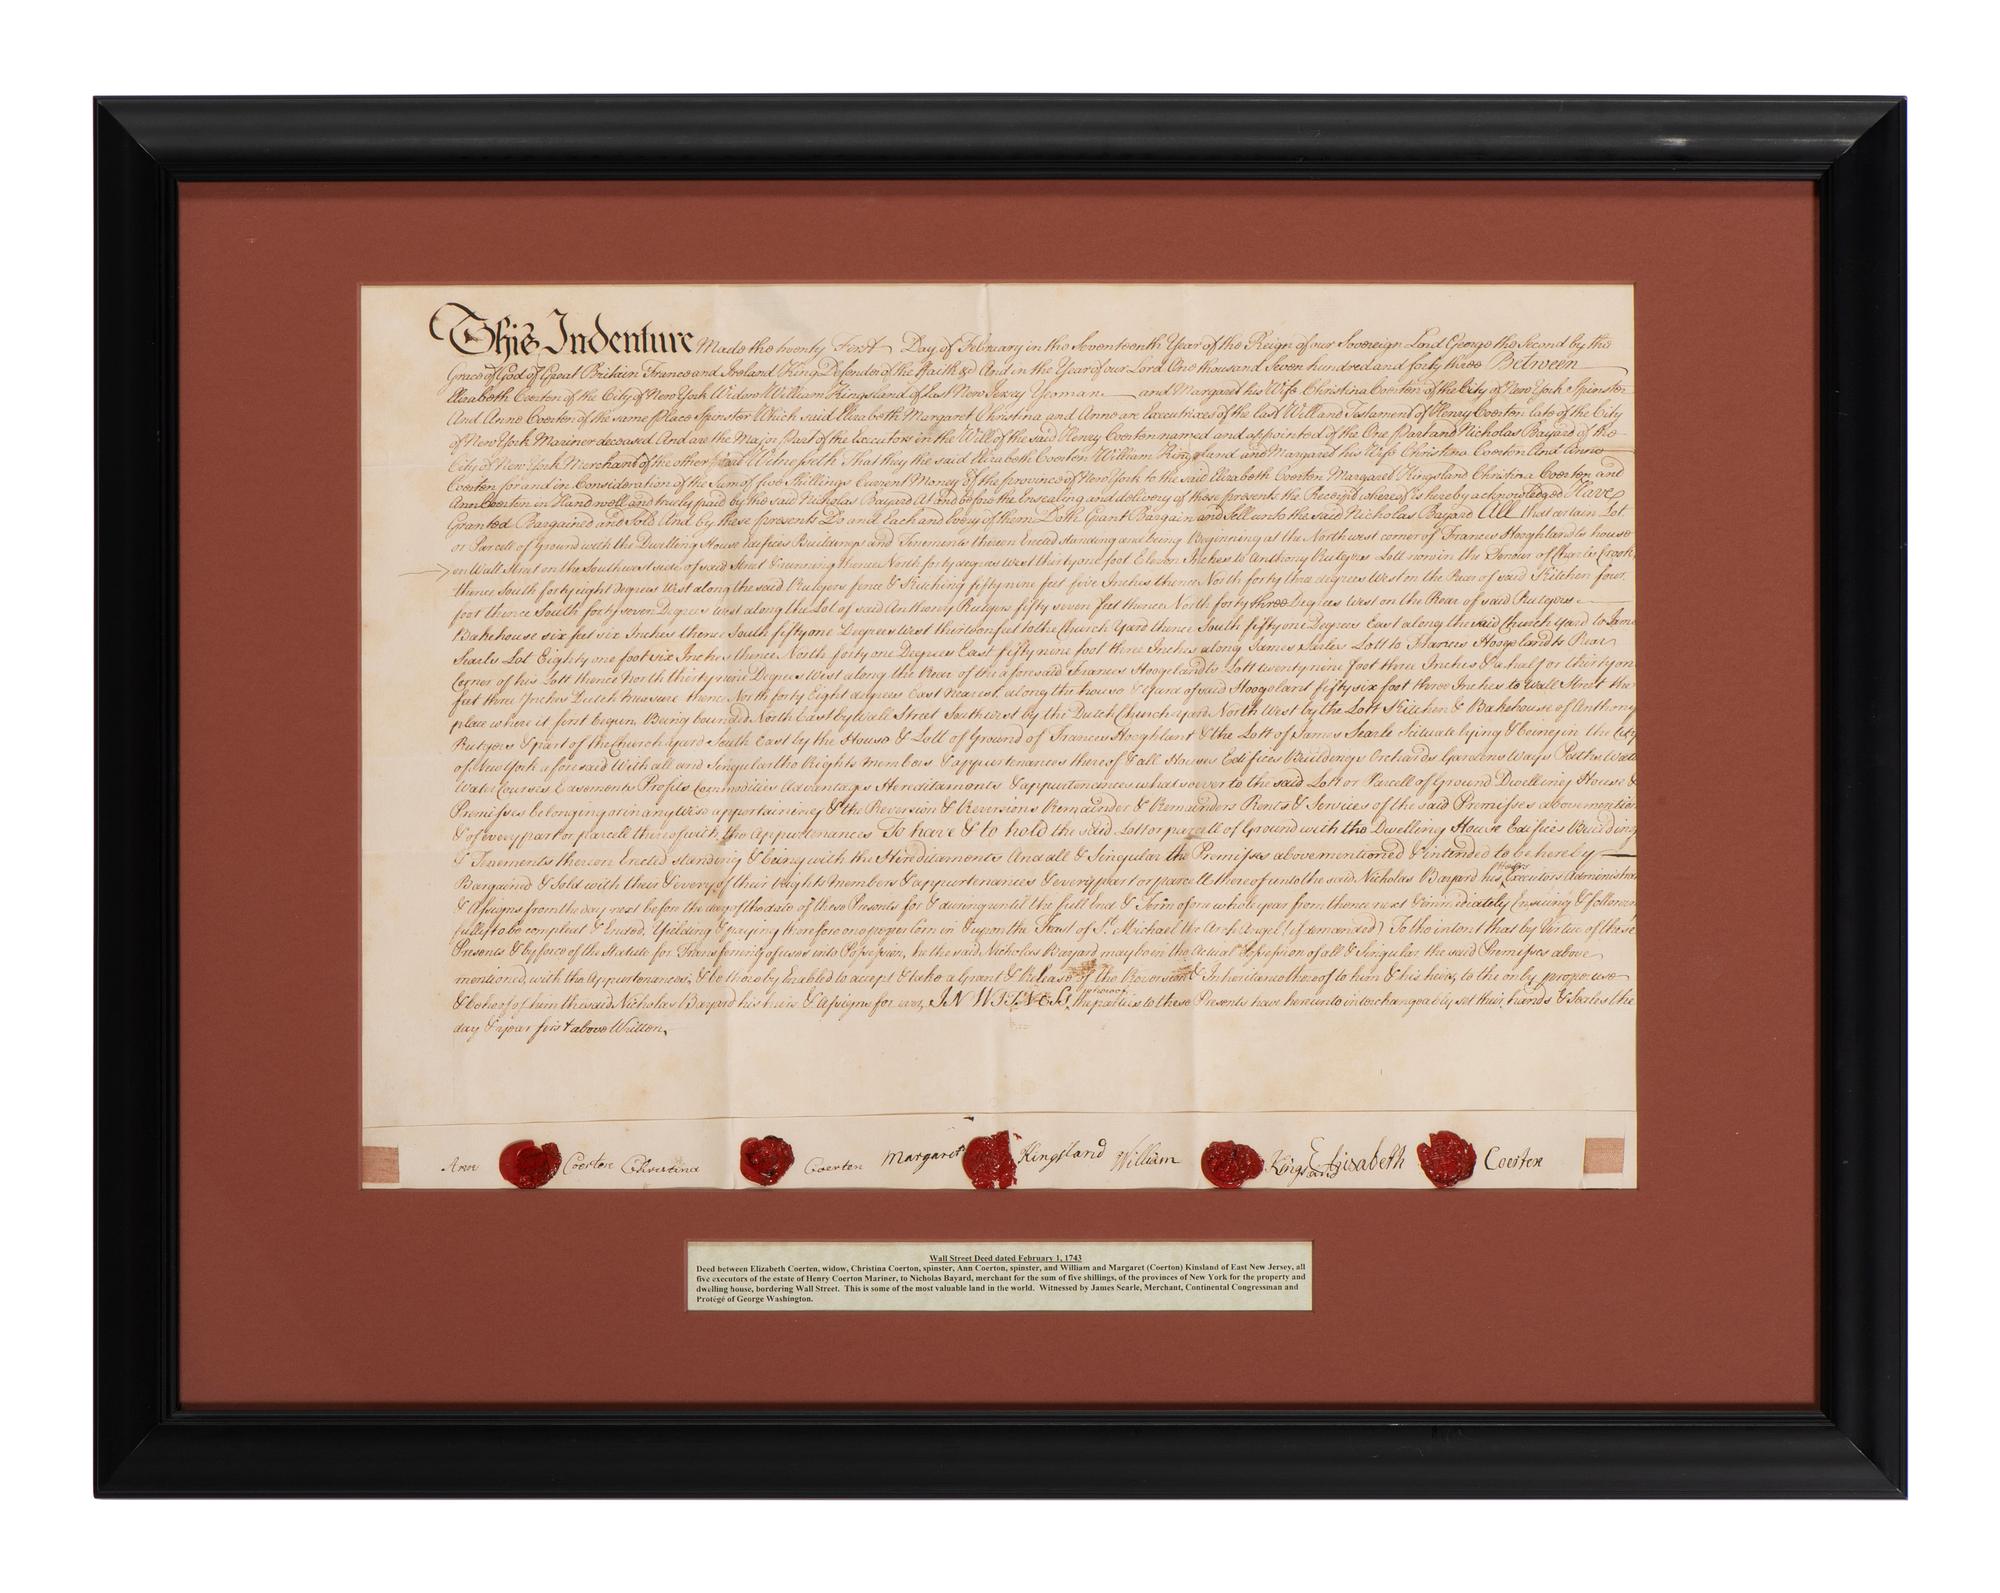 This Indenture Made the twenty First Day of February in the Seventeenth Year of the Reign of our Sovereign Lord George the Second by the
Grace of God of Great Britain France and Ireland King Defender of the Faith &c And in the Year of our Lord One thousand Seven hundred and forty three Between
Elizabeth Coerten of the City of New York Widow William Kingsland of East New Jersey Yeoman and Margaret his Wife Christina Coerten of the City of New York Spinster
And Anne Coerten of the same place Spinster Which said Elizabeth Margaret Christina and Anne are Executrixes of the last Will and Testament of Henry Coerten late of the City
of New York Mariner deceased And are the Major Part of the Executors in the Will of the said Henry Coerten named and appointed of the One Part and Nicholas Bayard of the
City of New York Merchant of the other Part Witnesseth That they the said Elizabeth Coerten William Kingsland and Margaret his Wife Christina Coerten And Anne
Coerten for and in Consideration of the Sum of five Shillings Current Money of the province of New York to the said Elizabeth Coerten Margaret Kingsland Christina Coerten and
Ann Coerten in Hand well and truly paid by the said Nicholas Bayard At and before the Ensealing and delivery of these presents the Receipt whereof is hereby acknowledged Have
Granted Bargained and Sold And by these presents Do and Each and Every of them Doth Grant Bargain and Sell unto the said Nicholas Bayard All that certain Lot
or Parcell of Ground with the Dwelling House Edifices Buildings and Tenements thereon Erected standing and being Beginning at the North west corner of Francis Hooghlandts house
on Wall Street on the Southwest side of said Street & running thence North forty degrees West thirty one foot Eleven Inches to Anthony Rutgers Lott now in the Tenour of Charles Crook
thence South forty eight Degrees West along the said Rutgers fence & Kitching fifty nine feet five Inches thence North forty three degrees West on the Rear of said Kitchen four
foot thence South forty seven Degrees west along the Lot of said Anthony Rutgers fifty seven feet thence North forty three Degrees West on the Rear of said Rutgers
Bakehouse six feet six Inches thence South fifty one Degrees West thirteen feet to the Church Yard thence South fifty one Degrees East along the said Church Yard to Jame
Searls Lot Eighty one foot six Inches thence North forty one Degrees East fifty nine foot three Inches along James Searles Lott to Francis Hoogelandts Rear
Corner of his Lott thence North thirty nine Degrees West along the Rear of the aforesaid Frances Hoogelandts Lott twenty nine foot three Inches & a half or thirty on
feet three Inches Dutch measure thence North forty Eight degrees East Nearest, along the house & fence of said Hoogeland fifty six foot three Inches to Wall Street the
place where it first begun, Being bounded North East by Wall Street Southwest by the Dutch Church yard North West by the Lott Kitchen & Bakehouse of Anthony
Rutgers & part of the Church yard South East by the House & Lott of Ground of Frances Hooghlant & the Lott of James Searle Scituate lying & being in the City
of New York aforesaid With all and Singular the Rights Members & appurtenances thereof & all Houses Edifices Buildings Orchards Gardens Ways Paths Wate
Water Courses Easements Profits Commodities Advantages Hereditaments & appurtenances whatsoever to the said Lott or Parcell of Ground Dwelling House &
Premisses belonging or in any wise appertaining & the Reversion & Reversions Remainder & Remainders Rents & Services of the said Premisses abovemention
& of every part or parcell thereof with the Appurtenances To have & to hold the said Lott or parcell of Ground with the Dwelling House Edifices Building
& Tenements thereon Erected standing & being with the Hereditaments And all & Singular the Premisses abovementioned & intended to be hereby
Bargained & Sold with their & every of their Rights Members & appurtenances & every part or parcell thereof unto the said Nicholas Bayard his Heirs Executors Administra
& Assigns from the day next before the day of the date of these Presents for & during until the full End & Term of one whole year from thence next & immediately Ensuing & followin
fully to be compleat & Ended, Yielding & paying therefore one pepper Corn in & upon the Feast of St Michael the Arch Angel (if demanded) To the intent that by Virtue of these
Presents & by force of the Statute for Transferring of uses into Possession, he the said Nicholas Bayard may be in the Actual Possession of all & Singular the said Premisses above
mentioned, with the Appurtenances, & be thereby Enabled to accept & take a Grant & Release of the Reversion & Inheritance thereof to him & his heirs, to the only proper use
& behoof of him the said Nicholas Bayard his heirs & Assigns for ever, IN WITNESS whereof the parties to these Presents have hereunto interchangeably set their hands & Seales the
day & year first above Written
Ann Coerten Christina Coerten Margaret Kingsland William Kingsland Elizabeth Coerten
Wall Street Deed dated February 1, 1743
Deed between Elizabeth Coerten, widow, Christina Coerton, spinster, Ann Coerton, spinster, and William and Margaret (Coerton) Kinsland of East New Jersey, all
five executors of the estate of Henry Coerton Mariner, to Nicholas Bayard, merchant for the sum of five shillings, of the provinces of New York for the property and
dwelling house, bordering Wall Street. This is some of the most valuable land in the world. Witnessed by James Searle, Merchant, Continental Congressman and
Protégé of George Washington.